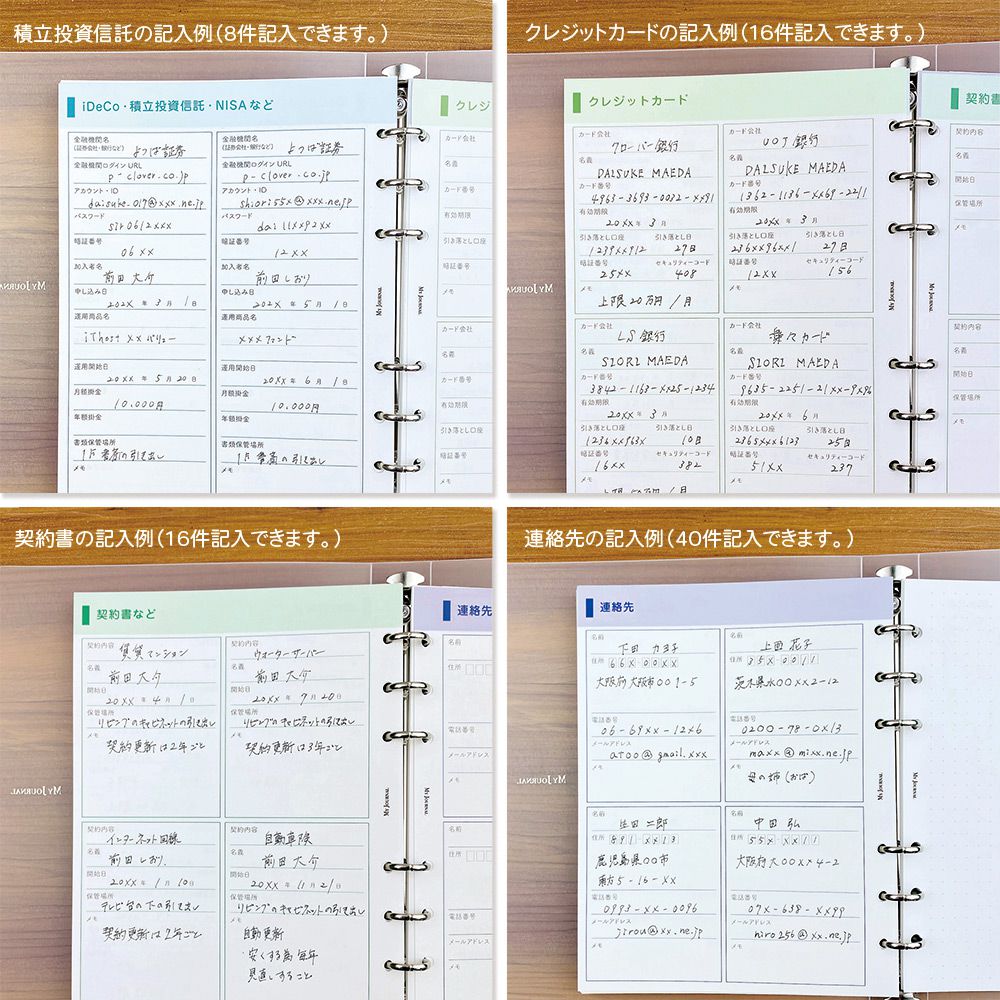 積立投資信託の記入例（8件記入できます。）
iDeCo・積立投資信託・NISAなど
クレジ
金融機関名
(証券会社・銀行など) よつば証券
金融機関ログインURL
p-clover.co.jp
アカウント・ID
daisuke.017@xxx.ne.jp
パスワード
sir0612xxx
暗証番号
06xx
加入者名
前田 大介
申し込み日
202x 年 3 月 1 日
運用商品名
iThost xx バリュー
運用開始日
20xx 年 5 月 20 日
月額掛金
10,000円
年額掛金
書類保管場所
1F 書斎の引き出し
メモ
金融機関名
(証券会社・銀行など) よつば証券
金融機関ログインURL
p-clover.co.jp
アカウント・ID
shiori55x@xxx.ne.jp
パスワード
dai11xxp2xx
暗証番号
12xx
加入者名
前田 しおり
申し込み日
202x 年 5 月 1 日
運用商品名
xxxファンド
運用開始日
20xx 年 6 月 1 日
月額掛金
10,000円
年額掛金
書類保管場所
1F 書斎の引き出し
メモ
カード会社
名義
カード番号
有効期限
引き落とし口座
暗証番号
メモ
カード会社
名義
カード番号
有効期限
引き落とし口座
暗証番号
メモ
MY JOURNAL
MY JOURNAL
MY JOURNAL
クレジットカードの記入例（16件記入できます。）
クレジットカード
契約書
カード会社
クローバー銀行
名義
DAISUKE MAEDA
カード番号
4963-3693-0032-xx91
有効期限
20xx 年 3 月
引き落とし口座 引き落とし日
1239xx912 27日
暗証番号 セキュリティーコード
25xx 408
メモ
上限20万円/月
カード会社
UOJ 銀行
名義
DAISUKE MAEDA
カード番号
1362-1136-xx69-2211
有効期限
20xx 年 3 月
引き落とし口座 引き落とし日
236xx96xx1 27日
暗証番号 セキュリティーコード
12xx 156
メモ
カード会社
LS 銀行
名義
SIORI MAEDA
カード番号
3842-1163-xx25-1234
有効期限
20xx 年 3 月
引き落とし口座 引き落とし日
1236xx963x 10日
暗証番号 セキュリティーコード
16xx 382
メモ
上限50万円/月
カード会社
楽々カード
名義
SIORI MAEDA
カード番号
9635-2251-21xx-9x96
有効期限
20xx 年 6 月
引き落とし口座 引き落とし日
2365xxx6123 25日
暗証番号 セキュリティーコード
51xx 237
メモ
契約内容
名義
開始日
保管場所
メモ
契約内容
名義
開始日
保管場所
MY JOURNAL
MY JOURNAL
MY JOURNAL
契約書の記入例（16件記入できます。）
契約書など
連絡先
契約内容
賃貸マンション
名義
前田 大介
開始日
20xx 年 4 月 1 日
保管場所
リビングのキャビネットの引き出し
メモ
契約更新は2年ごと
契約内容
ウォーターサーバー
名義
前田 大介
開始日
20xx 年 9 月 20 日
保管場所
リビングのキャビネットの引き出し
メモ
契約更新は3年ごと
契約内容
インターネット回線
名義
前田 しおり
開始日
20xx 年 1 月 10 日
保管場所
テレビ台の下の引き出し
メモ
契約更新は2年ごと
契約内容
自動車保険
名義
前田 大介
開始日
20xx 年 11 月 21 日
保管場所
リビングのキャビネットの引き出し
メモ
自動更新
安くする為 毎年
見直しすること
名前
住所
電話番号
メールアドレス
メモ
名前
住所
電話番号
メールアドレス
メモ
MY JOURNAL
MY JOURNAL
MY JOURNAL
連絡先の記入例（40件記入できます。）
連絡先
名前
下田 カヨ子
住所 66x-00xx
大阪府大阪市○○1-5
電話番号
06-69xx-12x6
メールアドレス
atoo@gmail.xxx
メモ
名前
上田 花子
住所 35x-0011
茨木県水○○xx2-12
電話番号
0200-78-0x13
メールアドレス
maxx@mixx.ne.jp
メモ
母の姉（おば）
名前
生田 二郎
住所 891-xx13
鹿児島県○○市
南方5-16-xx
電話番号
0993-xx-0096
メールアドレス
jirou@xx.ne.jp
メモ
名前
中田 弘
住所 55x-xx11
大阪府大○○xx4-2
電話番号
07x-638-xx99
メールアドレス
hiro256@xx.ne.jp
メモ
MY JOURNAL
MY JOURNAL
MY JOURNAL